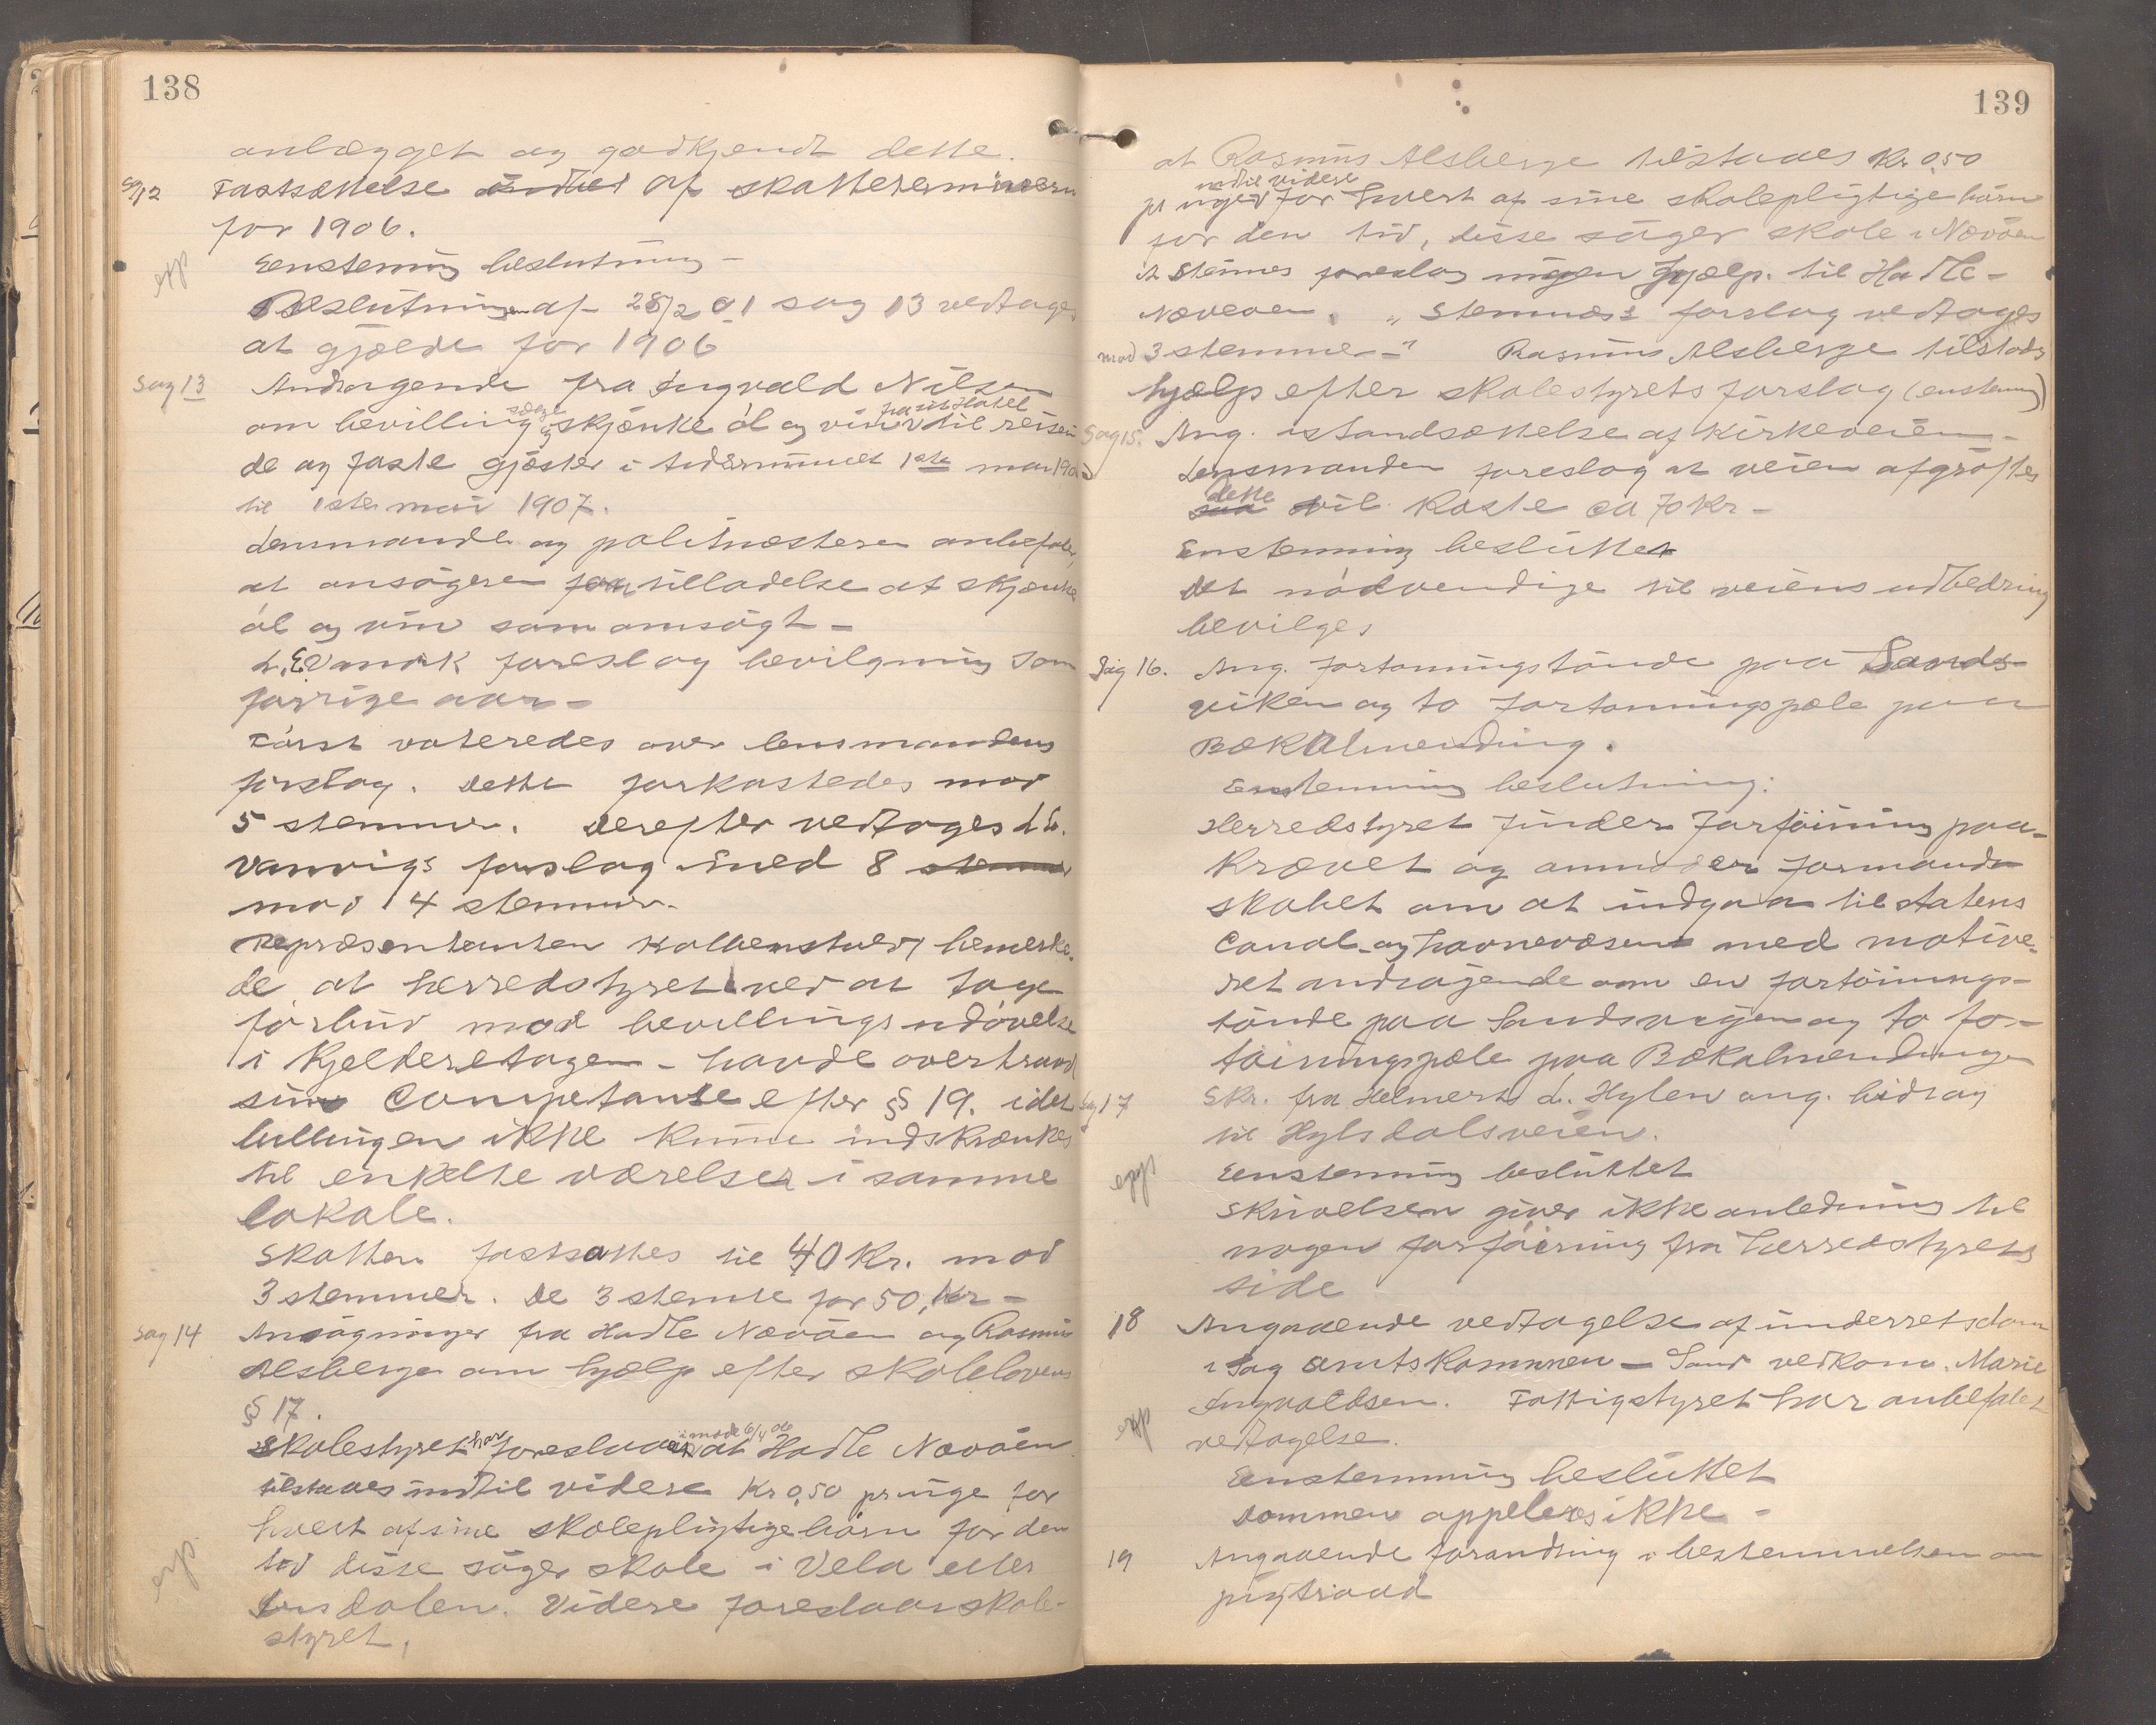 138
anlægget og godkjendt dette.
Sag 12 Fastsættelse af skatteterminerne
for 1906.
exp
Eenstemig beslutning –
Beslutningen af 28/2 01 sag 13 vedtages
at gjælde for 1906
Sag 13 Andragende fra Ingvald Nilsen
om bevilling sælge og skjænke øl og vin fra sit Hotel til reisen
de og faste gjæster i tidsrummet 1ste mai 1906
til 1ste mai 1907.
Lensmanden og politimesteren anbefaler,
at ansøgeren faar tilladelse at skjænke
øl og vin som ansøgt –
L. E. Vanvik foreslog bevilgning som
forrige aar –
Først voteredes over lensmandens
forslag. Dette forkastedes mod
5 stemmer. Derefter vedtoges L. E.
Vanvigs forslag med 8 stemmer
mod 4 stemmer.
Repræsentanten Kolbenstvedt bemerke-
de, at herredstyret ved at tage
forbud mod bevillings udøvelse
i Kjelderetagen – havde overtraadt
sin Competanse efter § 19. idet
bellingen ikke kunne indskrænkes
til enkelte værelser i samme
lokale.
Skatten fastsattes til 40 Kr. mod
3 stemmer. De 3 stemte for 50 Kr –
Sag 14 Ansøgninger fra Hadle Nævøen og Rasmus
Alsberge om hjælp efter skolelovens
§ 17.
Skolestyret har foreslaaet i møde 6/4 06 at Hadle Nævøen
tilstaaes indtil videre Kr 0,50 pr uge for
hvert af sine skolepligtige børn for den
exp.
tid disse søger skole i Vela eller
dalen. Videre foreslaar skole-
styret,
139
at Rasmus Alsberge tilstaaes Kr. 0,50
indtil videre
pr uge for hvert af sine skolepligtige børn
for den tid, disse søger skole i Nævøen
A Stennes foreslog ingen hjælp. til Hadle
Nævøen. „ Stennes's forslag vedtoges
mod 3 stemmer –" Rasmus Alsberge tilstods
hjælp efter skolestyrets forslag (enstemig)
Sag 15. Ang. istandsættelse af Kirkeveien –
Lensmanden foreslog at veien afgrøftes
dette
saa vil koste ca 70 Kr –
Enstemmig besluttet
Det nødvendige til veiens udbedring
bevilges
Sag 16. Ang. fortøiningstønde paa Sands-
viken og to fortøiningspæle paa
Bækalmending.
Enstemmig beslutning:
Herredstyret finder Forføining paa-
krævet og anmoder formand-
skabet om at indgaa til statens
Canal- og havnevæsen med motive-
ret andragende om en fortøinings-
tønde paa Sandsvigen og to for-
tøiningspæle paa Bækalmendingen
Sag 17 Skr. fra Helmert L. Hylen ang. bidrag
til Hylsdalsveien.
exp
Eenstemig besluttet
Skrivelsen giver ikke anledning til
nogen forføining fra herredstyrets
side
18 Angaaende vedtagelse af underretsdom
i Sag amtskommunen – Sand vedkom. Marie
Ingvaldsen. Fattigstyret har anbefalet
exp
vedtagelse.
Eenstemmig besluttet
Dommen appeleres ikke –
19 Angaaende forandring i bestemmelsen om
pigtraad